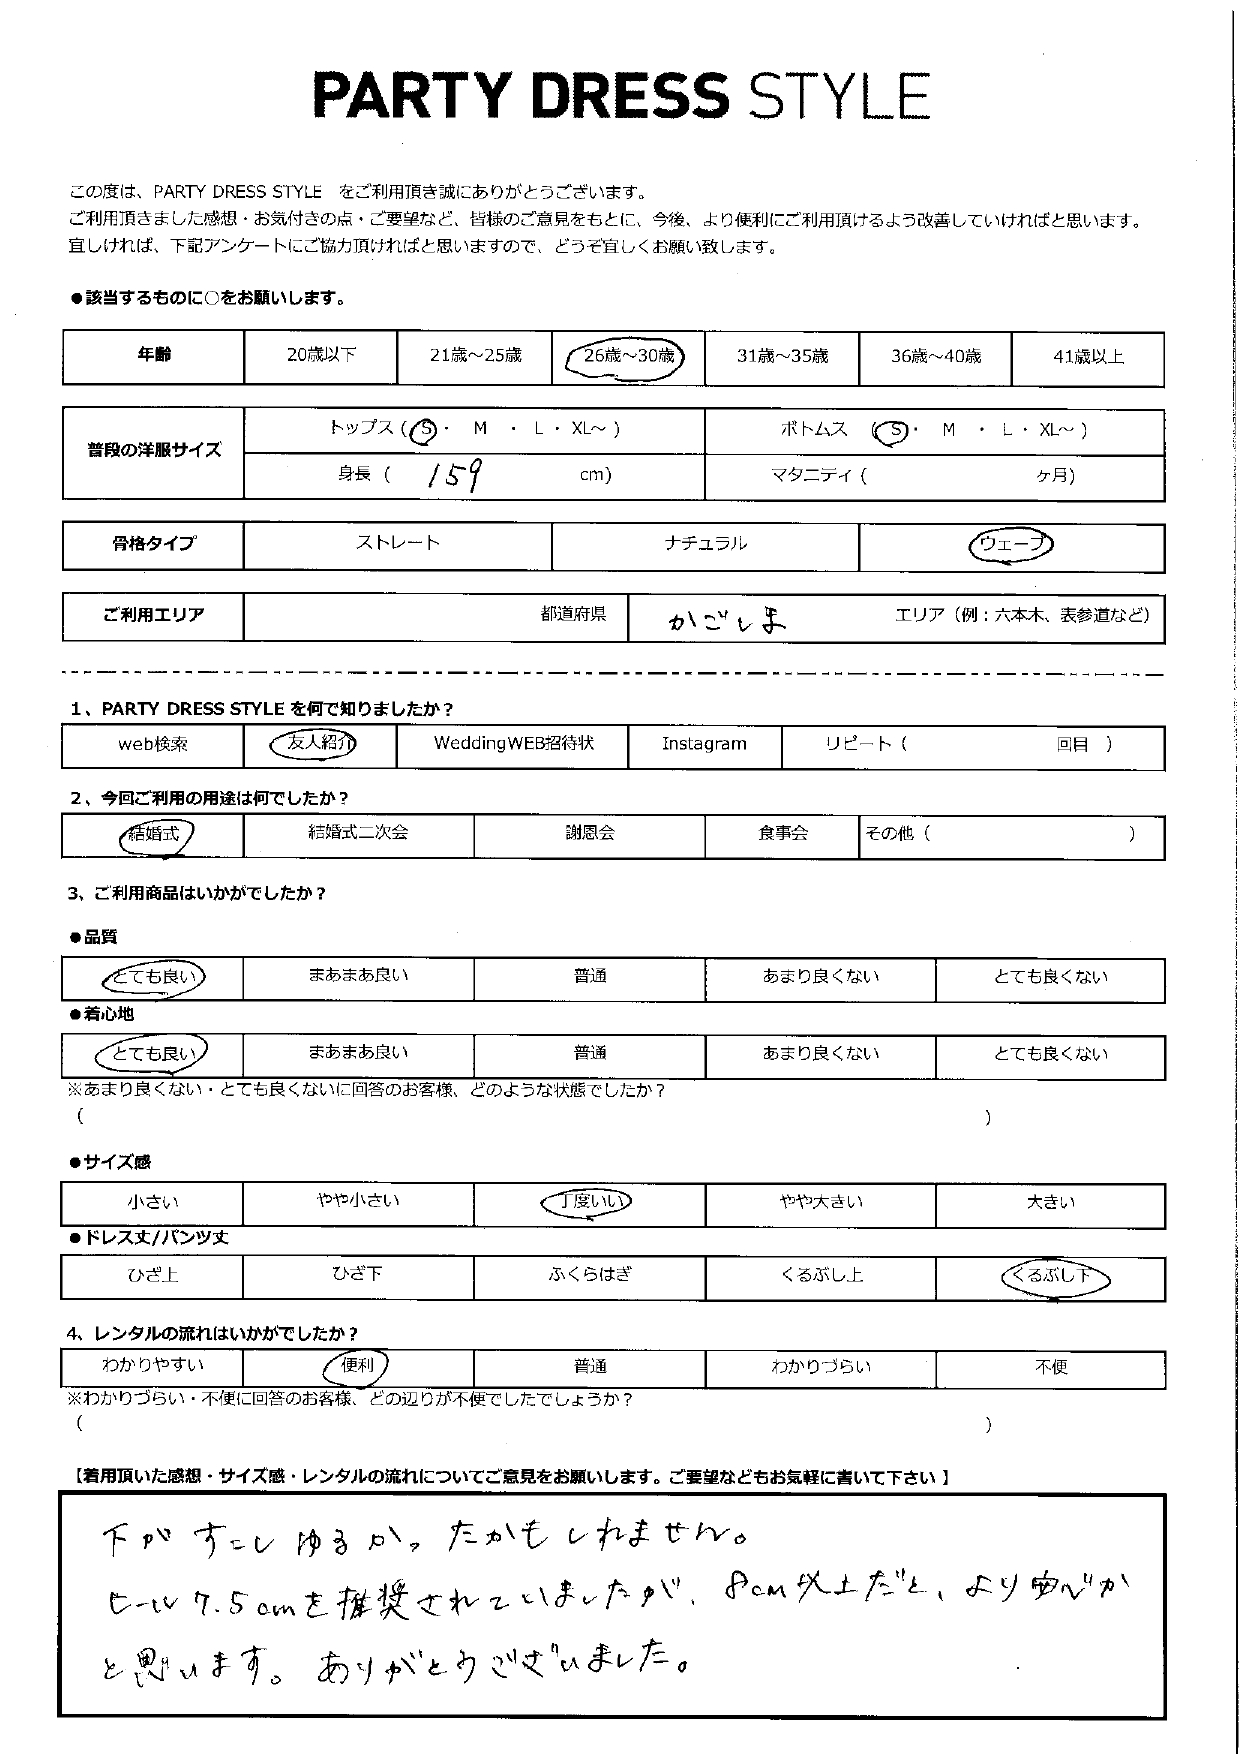 PARTY DRESS STYLE
この度は、PARTY DRESS STYLE　をご利用頂き誠にありがとうございます。
ご利用頂きました感想・お気付きの点・ご要望など、皆様のご意見をもとに、今後、より便利にご利用頂けるよう改善していければと思います。
宜しければ、下記アンケートにご協力頂ければと思いますので、どうぞ宜しくお願い致します。
●該当するものに○をお願いします。
年齢 20歳以下 21歳～25歳 26歳～30歳 31歳～35歳 36歳～40歳 41歳以上
普段の洋服サイズ トップス (S・ M ・ L ・ XL～ ) ボトムス (S・ M ・ L ・ XL～ )
身長 ( 159 cm) マタニティ ( ヶ月)
骨格タイプ ストレート ナチュラル ウェーブ
ご利用エリア 都道府県 かごしま エリア（例：六本木、表参道など）
1、PARTY DRESS STYLE を何で知りましたか？
web検索 友人紹介 WeddingWEB招待状 Instagram リピート ( 回目 )
2、今回ご利用の用途は何でしたか？
結婚式 結婚式二次会 謝恩会 食事会 その他 ( )
3、ご利用商品はいかがでしたか？
●品質
とても良い まあまあ良い 普通 あまり良くない とても良くない
●着心地
とても良い まあまあ良い 普通 あまり良くない とても良くない
※あまり良くない・とても良くないに回答のお客様、どのような状態でしたか？
( )
●サイズ感
小さい やや小さい 丁度いい やや大きい 大きい
●ドレス丈/パンツ丈
ひざ上 ひざ下 ふくらはぎ くるぶし上 くるぶし下
4、レンタルの流れはいかがでしたか？
わかりやすい 便利 普通 わかりづらい 不便
※わかりづらい・不便に回答のお客様、どの辺りが不便でしたでしょうか？
( )
【着用頂いた感想・サイズ感・レンタルの流れについてご意見をお願いします。ご要望などもお気軽に書いて下さい 】
下がすこしゆるかったかもしれません。
ヒール7.5cmを推奨されていましたが、8cm以上だと、より安心か
と思います。ありがとうございました。